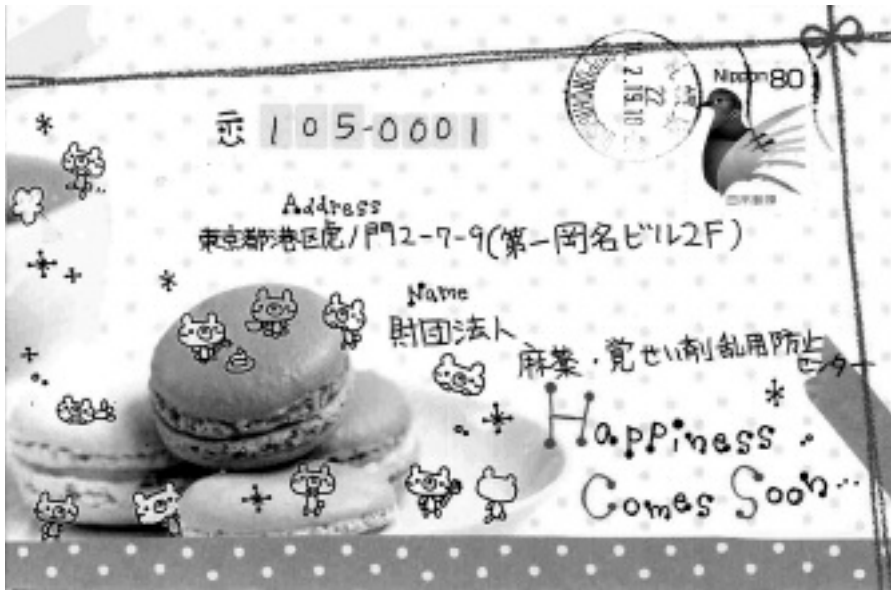 Nippon 80
〒 105-0001
日本郵便
Address
東京都港区虎ノ門2-7-9(第一岡名ビル2F)
Name
財団法人
麻薬・覚せい剤乱用防止
センター
Happiness..
Comes Soon...